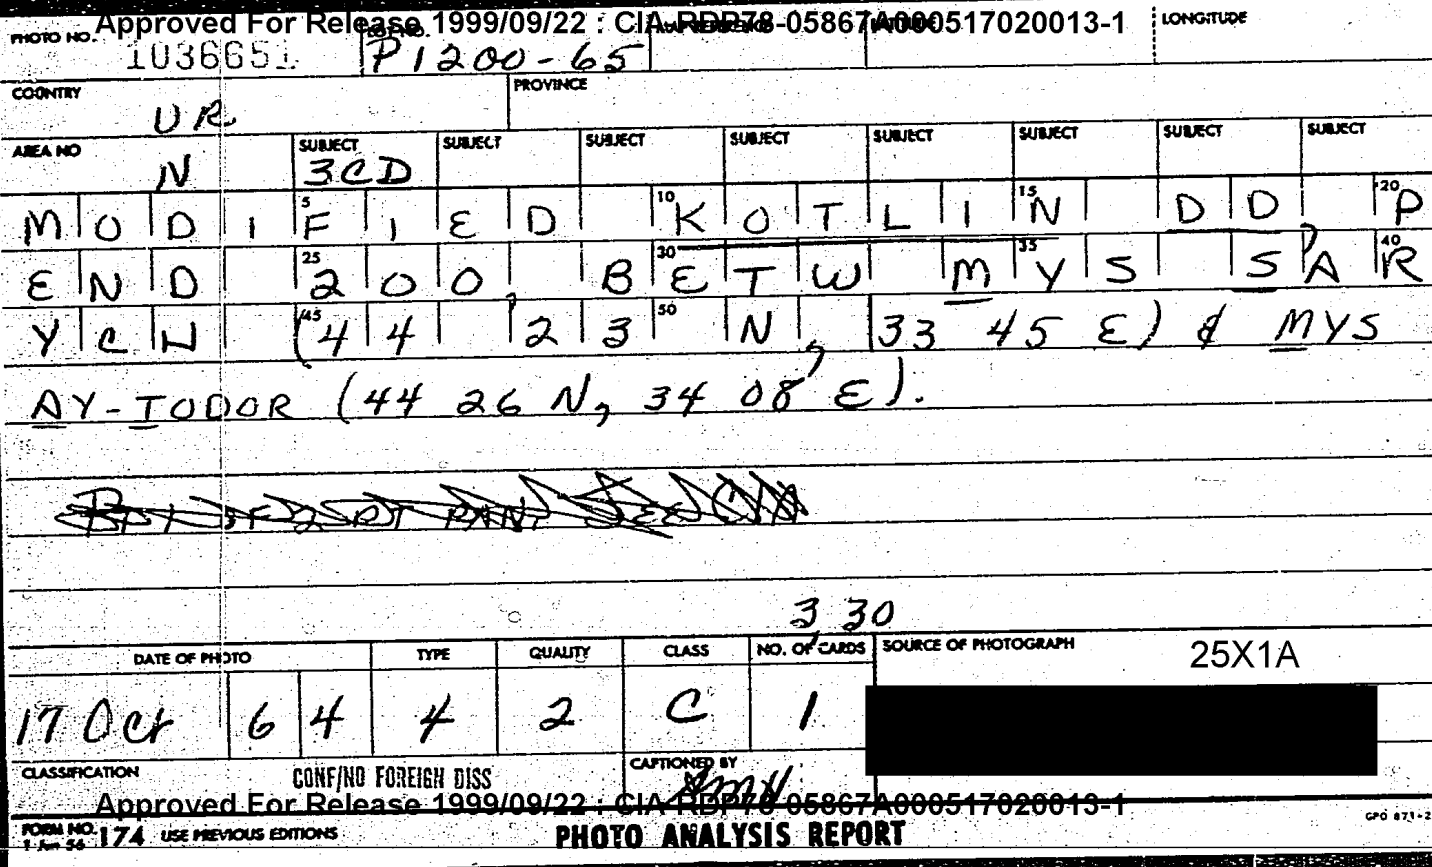 Approved For Release 1999/09/22 : CIA-RDP78-05867A000517020013-1
PHOTO NO. 1036651 P1200-65 LONGITUDE
COUNTRY UR PROVINCE
AREA NO N SUBJECT 3CD SUBJECT SUBJECT SUBJECT SUBJECT SUBJECT SUBJECT SUBJECT
MODIFIED KOTLIN DD, P
END 200, BETW MYS SAR
YCH (44 23 N, 33 45 E) & MYS
AY-TODOR (44 26 N, 34 08 E).
3 30
DATE OF PHOTO TYPE QUALITY CLASS NO. OF CARDS SOURCE OF PHOTOGRAPH 25X1A
17 Oct 64 4 2 C 1
CLASSIFICATION CONF/NO FOREIGN DISS CAPTIONED BY
Approved For Release 1999/09/22 : CIA-RDP78-05867A000517020013-1
FORM NO. 174 USE PREVIOUS EDITIONS PHOTO ANALYSIS REPORT
1 Jun 56